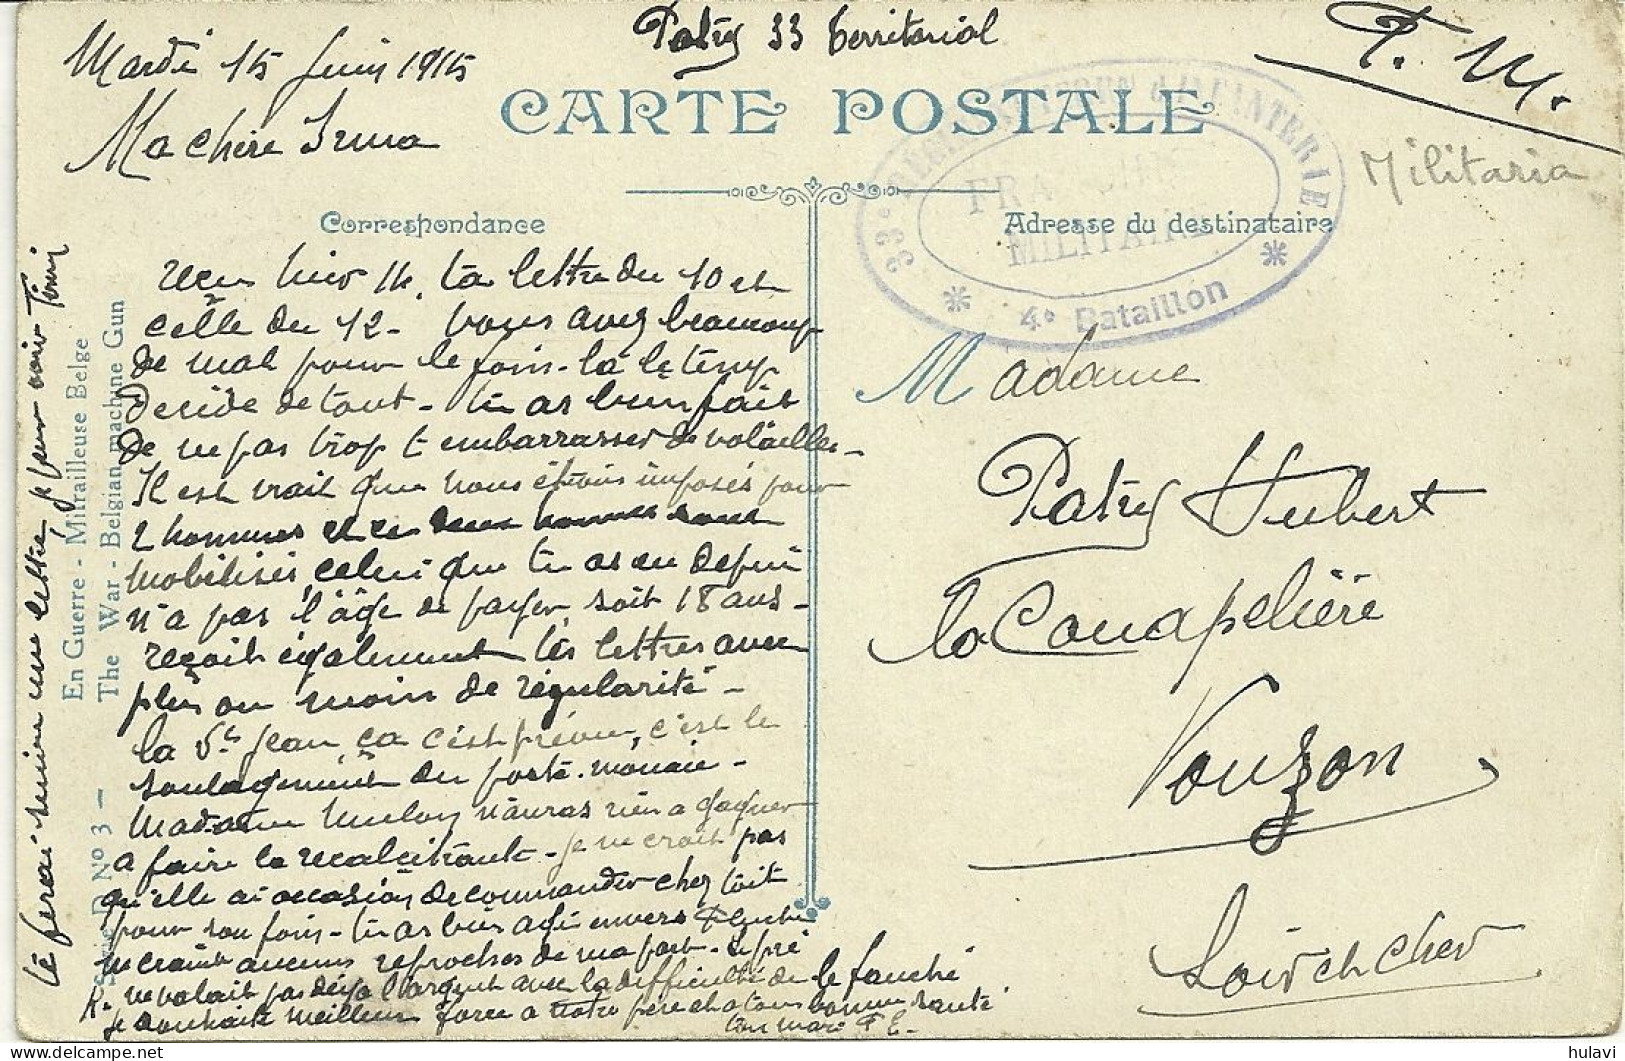 Patry 33 territorial
F. M.
Mardi 15 Juin 1915
Ma chère Irma
CARTE POSTALE
Militaria
33e RÉGIMENT D'INFANTERIE
FRANCHISE
MILITAIRE
* 4e Bataillon *
Correspondance
Adresse du destinataire
reçu hier 14. ta lettre du 10 et
celle du 12 - vous avez beaucoup
de mal pour le foin - là le temp
décide de tout - tu as bien fait
de ne pas trop t embarrasser de volailles -
Il est vrait que nous étions imposés pour
2 hommes et ces deux hommes sont
mobilisés celui que tu as eu depuis
n'a pas l'âge de payer soit 18 ans -
reçoit également tes lettres avec
plus ou moins de régularité -
la St Jean ça c'est prévu, c'est le
soulagement du porte-monaie -
Madame n'auras rien a gagner
a faire la recalcitrante - je ne croit pas
qu'elle ai occasion de commander chez toit
pour son foin - tu as bien agi envers
ne craint aucuns reproches de ma part - le pré
ne valait pas déja l'argent avec la difficulté de le fauché
je souhaite meilleure force a notre père et a tous bonne santé
ton mari P E.
té ferai une lettre pour
En Guerre - Mitrailleuse Belge
The War - Belgian machine Gun
Série D No 3 -
Madame
Patry Hubert
la Couapelière
Vouzon
Loir et cher
hulavi